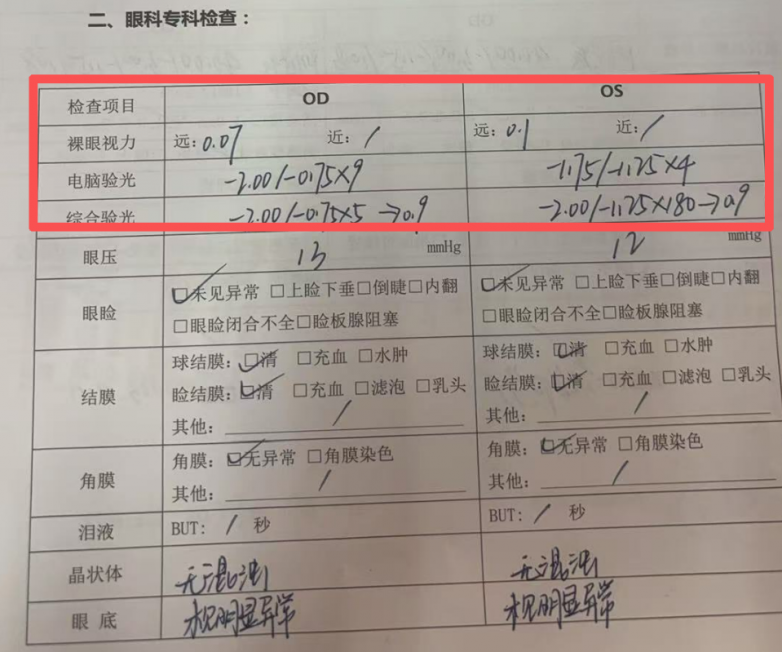 二、眼科专科检查：
检查项目 OD OS
裸眼视力 远：0.07 近：/ 远：0.1 近：/
电脑验光 -2.00/-0.75×9 -1.75/-1.25×4
综合验光 -2.00/-0.75×5→0.9 -2.00/-1.25×180→0.9
眼压 13 mmHg 12 mmHg
眼睑 ☑未见异常 □上睑下垂□倒睫□内翻 ☑未见异常 □上睑下垂□倒睫□内翻
□眼睑闭合不全□睑板腺阻塞 □眼睑闭合不全□睑板腺阻塞
结膜 球结膜：☑清 □充血 □水肿 球结膜：☑清 □充血 □水肿
睑结膜：☑清 □充血 □滤泡 □乳头 睑结膜：☑清 □充血 □滤泡 □乳头
其他：/ 其他：/
角膜 角膜：☑无异常 □角膜染色 角膜：☑无异常 □角膜染色
其他：/ 其他：/
泪液 BUT: / 秒 BUT: / 秒
晶状体 无混浊 无混浊
眼底 明显异常 明显异常